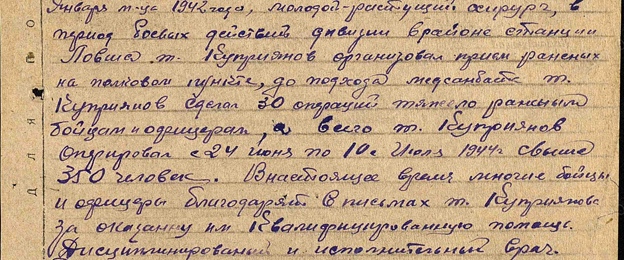 Января м-ца 1942 года, молодой-растущий хирург, в
период боевых действий дивизии в районе станции
Ловша т. Куприянов организовал прием раненых
на полковом пункте, до подхода медсанбата т.
Куприянов сделал 30 операций тяжело раненым
бойцам и офицерам, а всего т. Куприянов
оперировал с 24 июня по 10е Июля 1944г свыше
350 человек. В настоящее время многие бойцы
и офицеры благодарят в письмах т. Куприянова
за оказанну им Квалифицированную помощь.
Дисциплинированый и исполнительный врач.
д л я п о